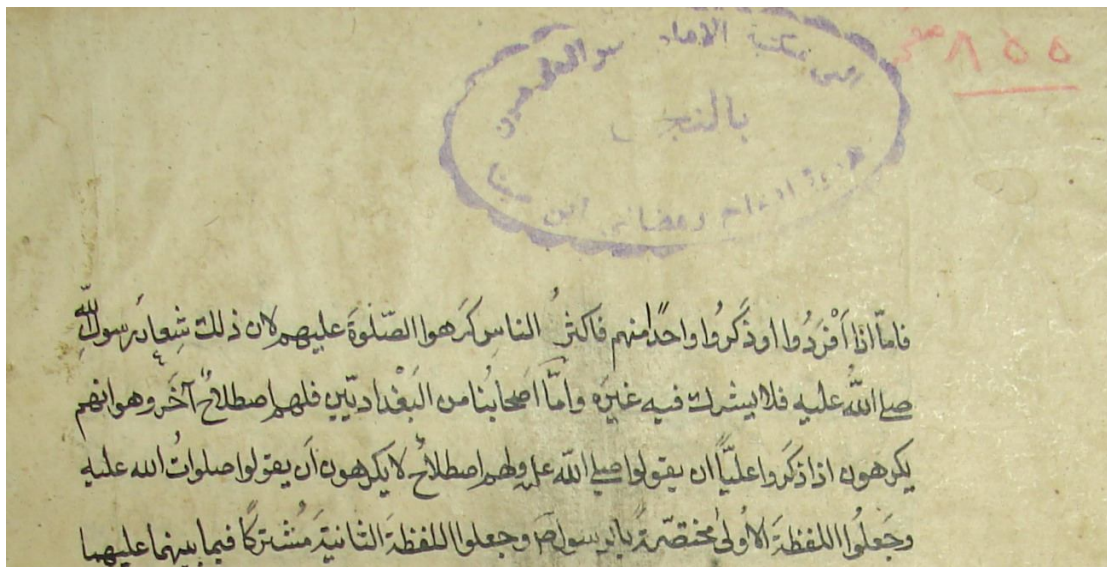 ٨٥٥
مكتبة الامام
بالنجف
فامّا اذا اَفْرَدُوا او ذَكَرُوا واحدًا منهم فاكثرُ الناسِ كَرَهوا الصّلٰوةَ عليهم لان ذلك شِعارُ رسولِ اللّٰه
صلى اللّٰهُ عليه فلا يشرك فيه غيرَه وامّا اصحابُنا من البَغْداديّين فلهم اصطلاحٌ آخَر وهو انهم
يكرهون اذا ذكَرَوا عليّاً ان يقولوا صلى اللّٰه عليه ولهم اصطلاحٌ لا يكرهون اَن يقولوا صلواتُ الله عليه
وجَعلُوا اللفظةَ الاُولىٰ مختصّةً بالرسول ص وجعلوا اللفظةَ الثانيةَ مُشتركًا فيما بينهما عليهما